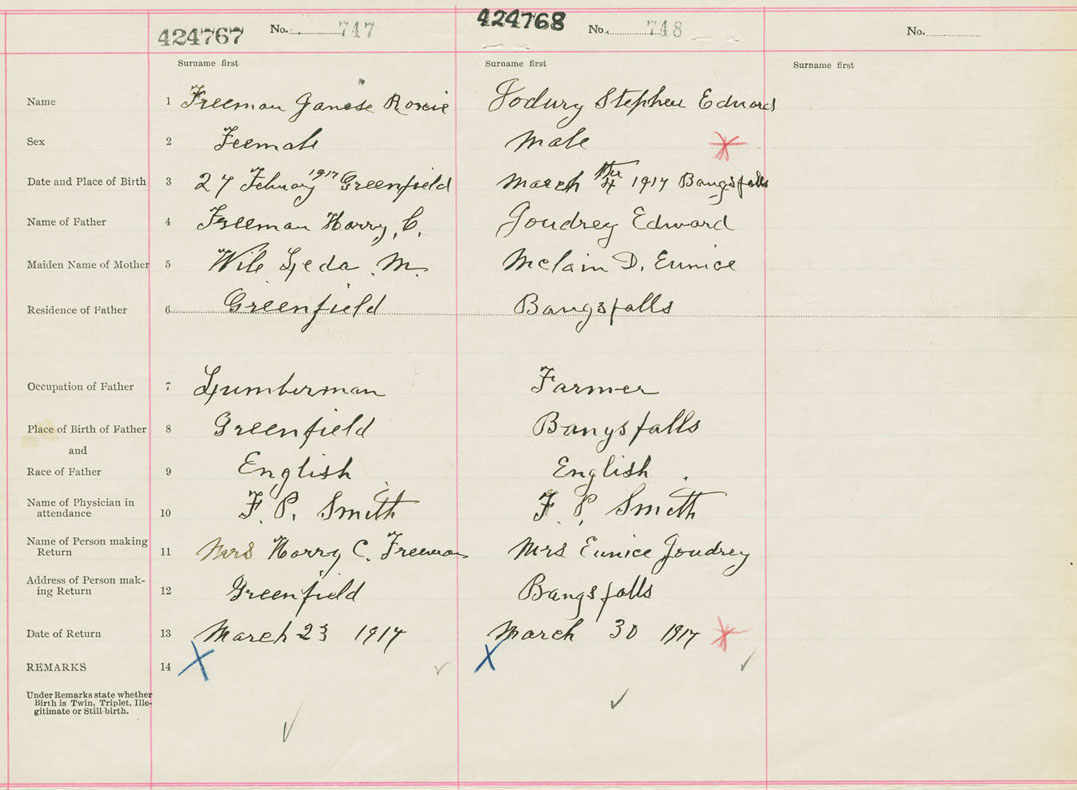 424767 No. 747 424768 No. 748 No.
Surname first Surname first Surname first
Name 1 Freeman Janese Roxcie Jodury Stephen Edward
Sex 2 Feemale male
Date and Place of Birth 3 27 Februay 1917 Greenfield march the 4 1917 Bangsfalls
Name of Father 4 Freeman Harry C. Joudrey Edward
Maiden Name of Mother 5 Wile Leda M. Mclain D. Eunice
Residence of Father 6 Greenfield Bangsfalls
Occupation of Father 7 Lumberman Farmer
Place of Birth of Father 8 Greenfield Bangsfalls
and
Race of Father 9 English English
Name of Physician in
attendance 10 F. P. Smith F. P. Smith
Name of Person making
Return 11 Mrs Harry C. Freeman Mrs Eunice Joudrey
Address of Person mak-
ing Return 12 Greenfield Bangsfalls
Date of Return 13 March 23 1917 March 30 1917
REMARKS 14
Under Remarks state whether
Birth is Twin, Triplet, Ille-
gitimate or Still-birth.